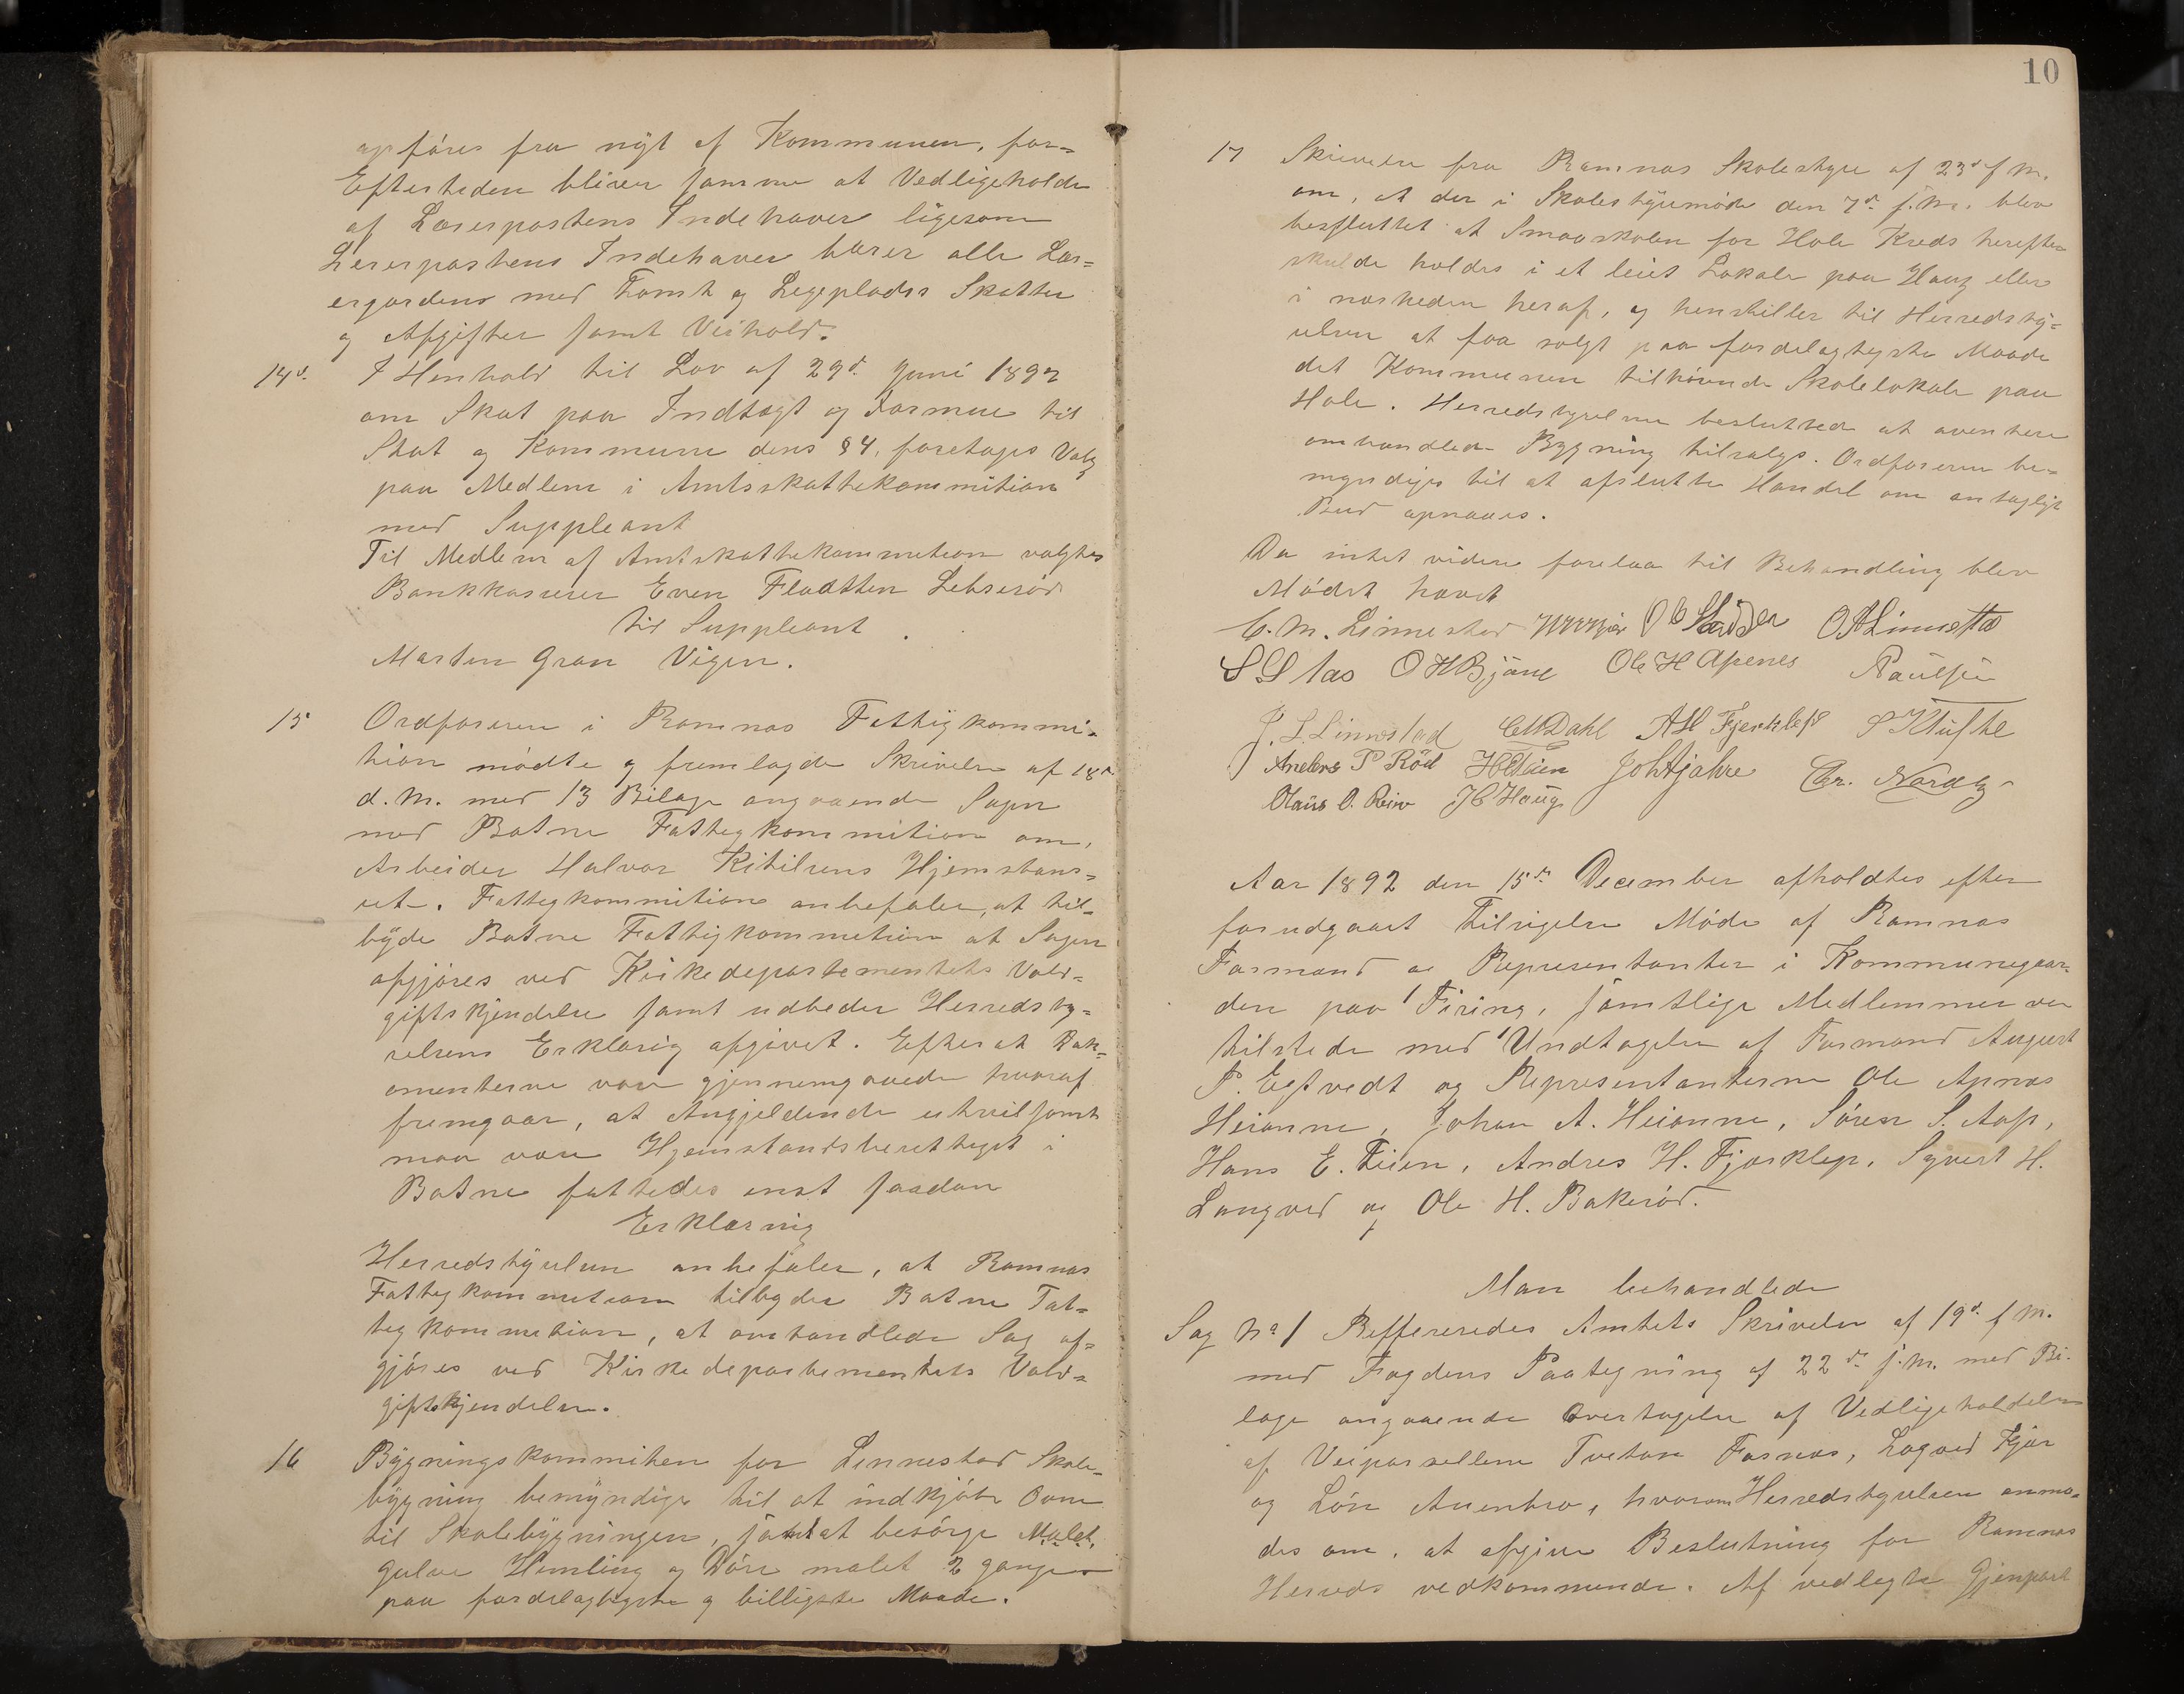 opføres fra nyt af Kommunen, for=
Eftertiden bliver samme at Vedligeholde
af Lærerpostens Indehaver ligesom
Lærerpostens Indehaver bærer alle Lær=
ergardens med Tomt og Legeplads Skatter
og Afgifter samt Veihold.
14d. I Henhold til Lov af 29d. Juni 1892
om Skat paa Indtægt og Formue til
Stat og Kommune dens § 4, foretoges Valg
paa Medlem i Amtsskattekommition
med Suppleant
Til Medlem af Amtskattekommetion valgtes
Bankkaserer Even Fladtten Lebserød
til Suppleant
Marten Gran Vigen.
15 Ordføreren i Ramnæs Fattigkommi=
tion mødte og fremlagde Skrivelse af 18d.
d. M. med 13 Bilage angaaende Sagen
med Botne Fattegkommition om,
Arbeider Halvor Kitilsens Hjemstavns=
ret. Fattegkommition anbefaler, at til=
byde Botne Fattigkommetion at Sagen
afgjøres ved Kirkedepartementets Vold=
giftskjendelse samt udbeder Herredsty=
relsens Erklæring afgivet. Efterat Dok=
omenterne var gjennemgaaede hvoraf
fremgaar, at Angjeldende utvilsomt
maa være Hjemstavnsberettiget i
Botne fattedes enst saadan
Erklæring
Herredstyrelsen anbefaler, at Ramnæs
Fattegkommetion tilbyder Botne Fat=
tegkommetion, at omhandlede Sag af=
gjøres ved Kirkedepartementets Vold=
giftskjendelse.
16 Bygningskommiteen for Linnestad Skole=
bygning bemyndiges til at indkjøbe Ovne
til Skolebygningen, samt at besørge Malet,
gulve Himling og Døre malet 2 gange
paa fordelagtigste og billigste Maade.
10
17 Skrivelse fra Ramnæs Skolestyre af 23d f. M.
om, at der i Skolestyremøde den 7d. f. M. blev
besluttet at Smaaskolen for Hole Kreds herefter
skulde holdes i et leiet Lokale paa Haug eller
i nærheden heraf, og henstiller til Herredsty=
relsen at faa solgt paa fordelagtigste Maade
det Kommunen tilhørende Skolelokale paa
Hole. Herredstyrelsen besluttede at
omhandlede Bygning tilsalgs. Ordføreren be=
myndiges til at afslutte Handel om antagligt
Bud opnaaes.
Da intet videre forelaa til Behandling blev
Mødet hævet
C. M. Linnestad O A Linnestad
O H Bjune Ole H Apenes Paulsen
J. L. Linnestad C M Dahl A H Fjerkleps S Klufte
Anders P Rød H E Fien Joh Hjahre Chr. Nordby
Claus O. Reiv J C Haug
Aar 1892 den 15de December afholdtes efter
forudgaaet Tilsigelse Møde af Ramnæs
Formænd og Representanter i Kommunegaar=
den paa Firing, samtlige Medlemmer var
tilstede med Undtagelse af Formand August
P. Egtvedt og Representanterne Ole Apnæs
Heianne, Johan A. Heianne, Søren S. Aas,
Hans E. Fien, Andres H. Fjærklep, Syvert H.
Langved og Ole H. Bakerød.
Man behandlede
Sag No 1 Reffereredes Amtets Skrivelse af 19d. f. M.
med Fogdens Paategning af 22de f. M. med Bi=
lage angaaende Overtagelse af Vedligeholdelse
af Veiparsellerne Tveten Fosnæs, Lagved Fjær
og Løn Auenbro, hvorom Herredstyrelsen anmo=
des om, at afgive Beslutning for Ramnæs
Herreds vedkommende. Af vedlagte Gjenpart